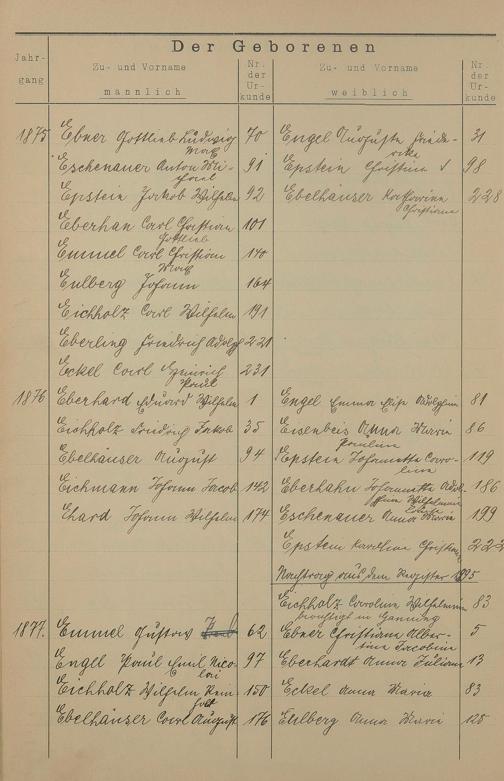 Der Geborenen
Jahr-
gang
Zu- und Vorname
männlich
Nr.
der
Ur-
kunde
Zu- und Vorname
weiblich
Nr.
der
Ur-
kunde
1875 Ebner Gottlieb Ludwig 70 Engel Auguste Friede- 31
Max rike
Eschenauer Anton Mi- 91 Epstein Christina 98
chael
Epstein Jakob Wilhelm 92 Ebelhäuser Katharina 228
Christiane
Eberhan Carl Christian 101
Gottlieb
Emmel Carl Christian 140
Max
Eulberg Johann 164
Eichholz Carl Wilhelm 191
Eberling Friedrich Adolph 221
Eckel Carl Heinrich 231
Paul
1876 Eberhard Eduard Wilhelm 1 Engel Emma Elise Adolphine 81
Eichholz Friedrich Jakob 35 Eisenbeis Anna Maria 86
Pauline
Ebelhäuser August 94 Epstein Johannette Caro- 119
line
Eichmann Johann Jacob 142 Eberhahn Johannette Adol- 186
phine Wilhelmine
Ehard Johann Wilhelm 174 Eschenauer Anna Maria 199
Epstein Karoline Christine 222
Nachtrag aus dem Register 1895
Eichholz Caroline Wilhelmine 83
1877. Emmel Gustav 62 Ebner Christiane Alber- 5
tine Jacobine
Engel Paul Emil Nico- 97 Eberhardt Anna Juliane 13
lai
Eichholz Wilhelm Rein- 150 Eckel Anna Maria 83
holt
Ebelhäuser Carl August 176 Eulberg Anna Maria 125